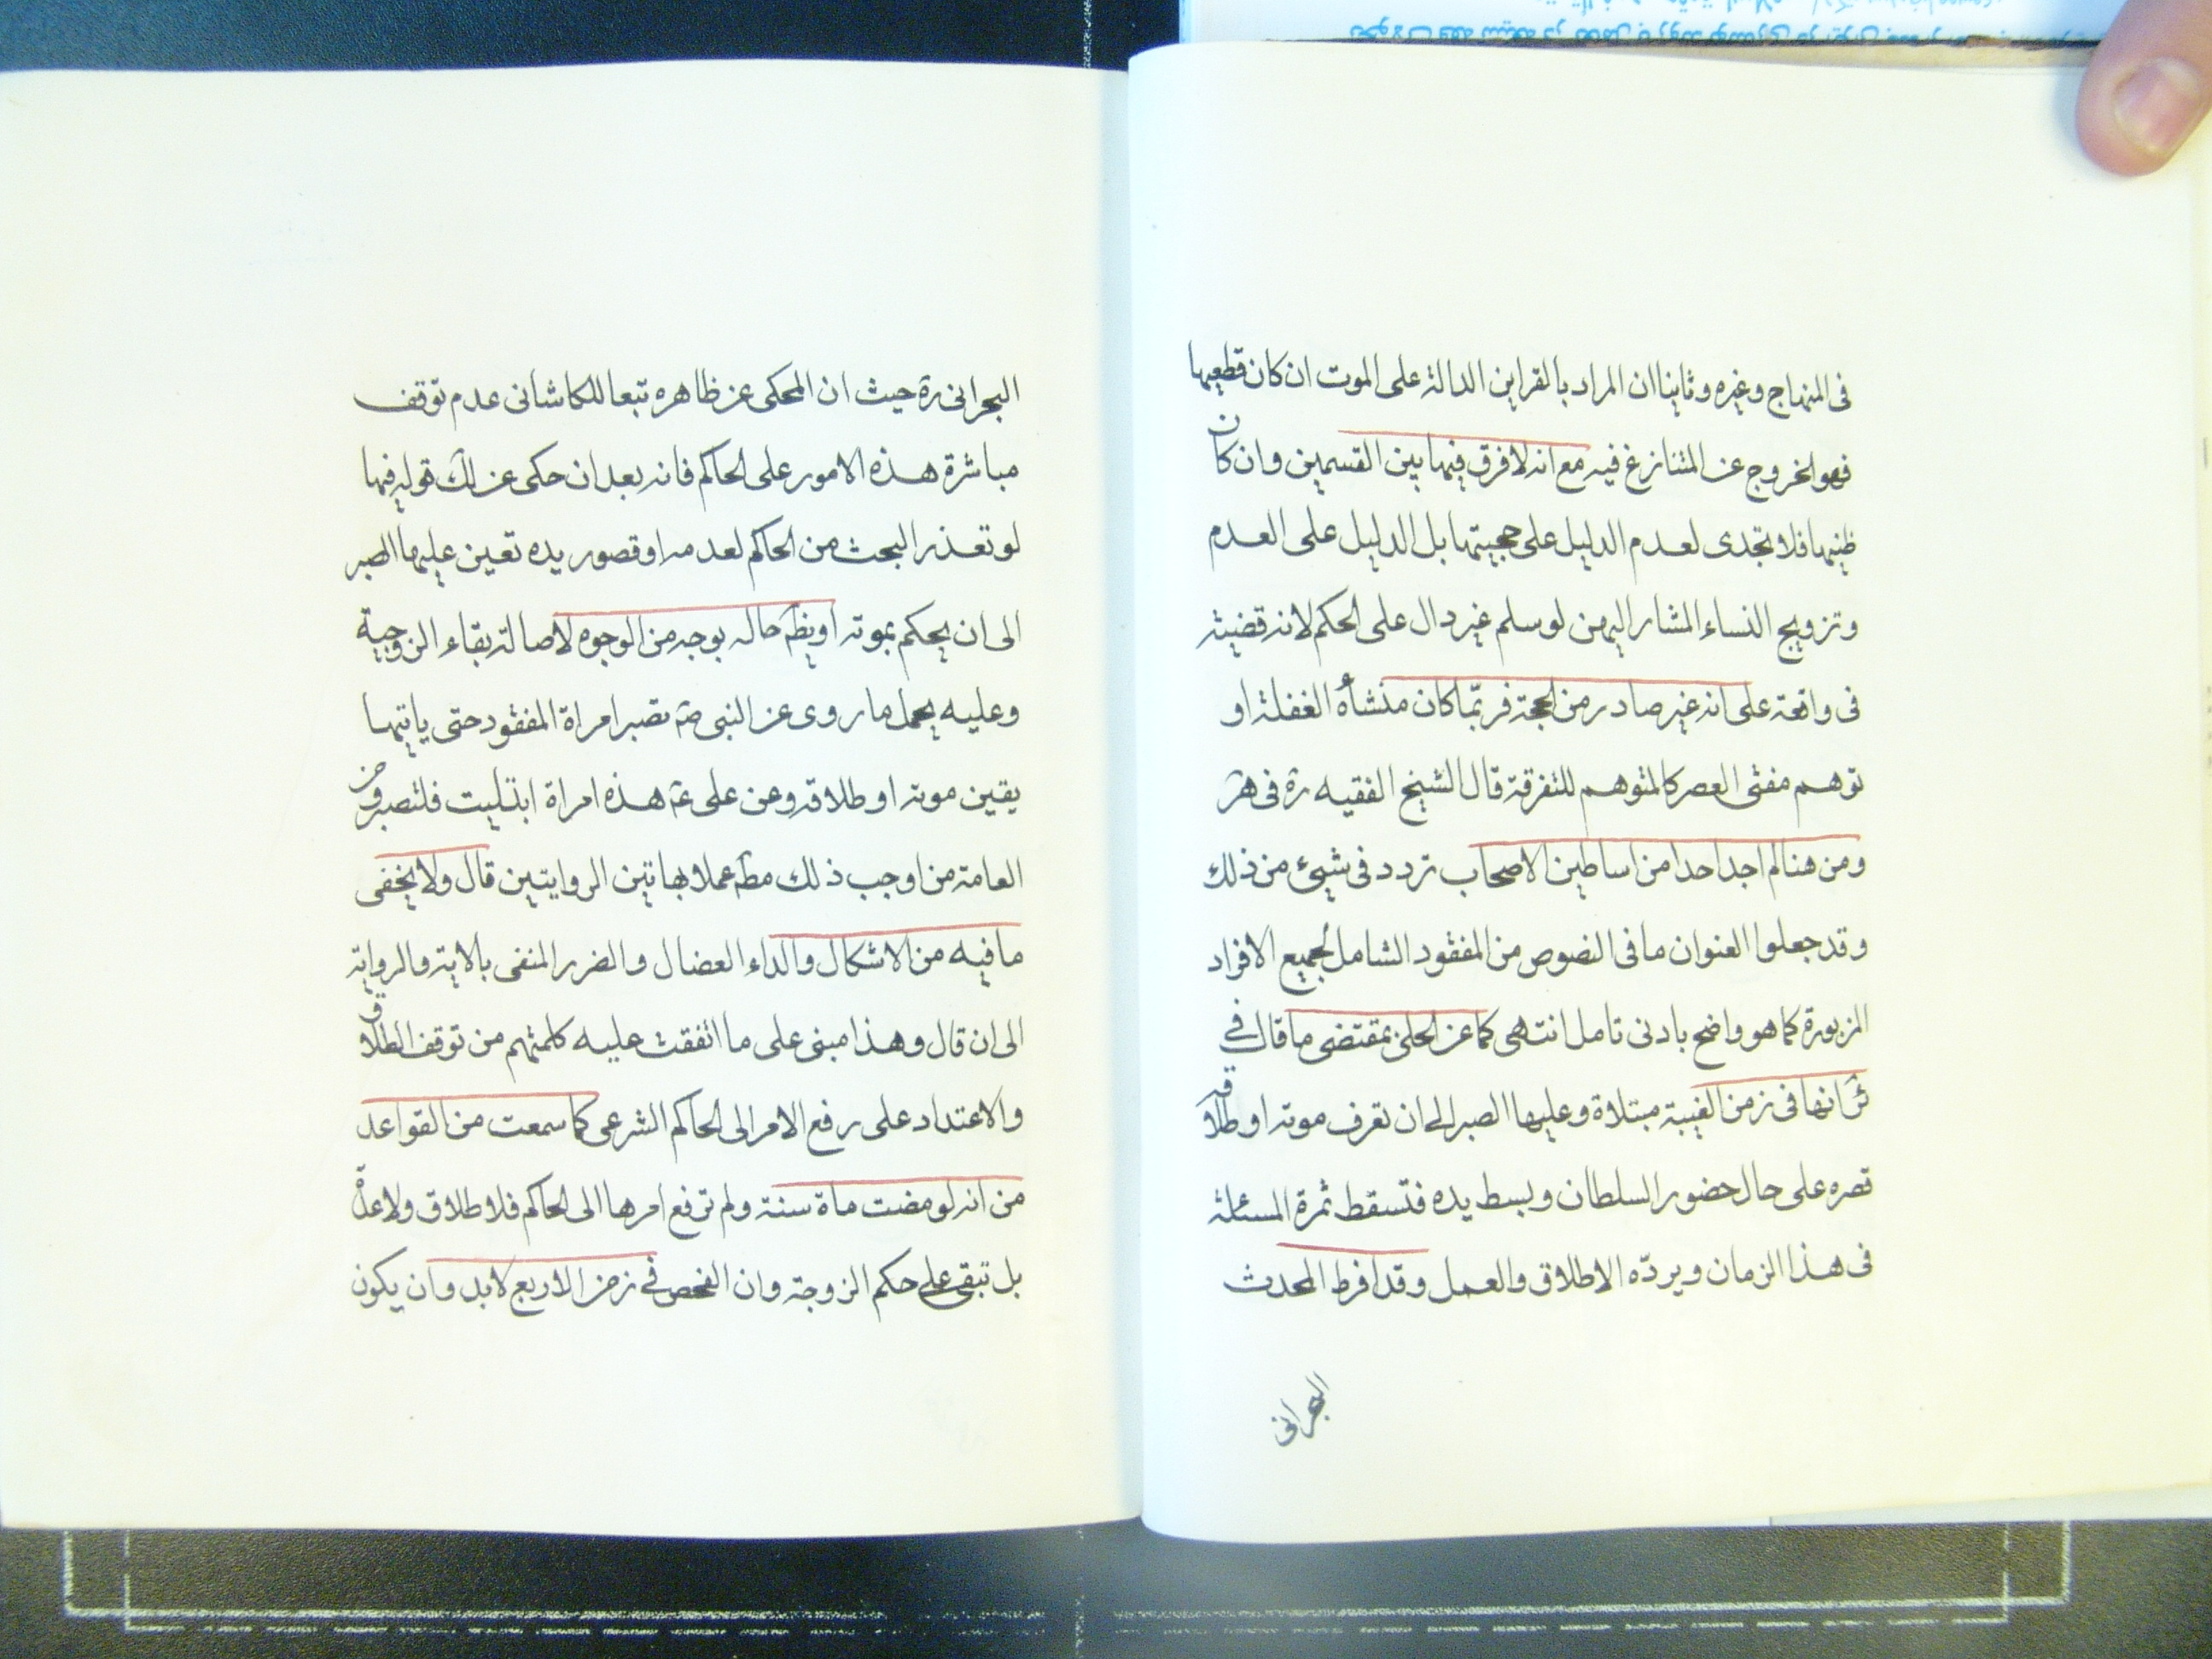 فى المنهاج وغيره وثانيا ان المراد بالقراين الدالة على الموت ان كان قطعيها
فهو لخروج عن المتنازع فيه مع انه لا فرق فيها بين القسمين وان كان
ظنيها فلا تجدى لعدم الدليل على حجيتها بل الدليل على العدم
وتزويج النساء المشار اليهن لو سلم غير دال على الحكم لانه قضية
فى واقعة على انه غير صادر من الحجة فربّما كان منشأه الغفلة او
توهم مفتى العصر كالمتوهم للتفرقة قال الشيخ الفقيه ره فى هر
ومن هنا لم اجد احدا من اساطين الاصحاب تردد فى شيئ من ذلك
وقد جعلوا العنوان ما فى النصوص من المفقود الشامل لجميع الافراد
المزبورة كما هو واضح بادنى تامل انتهى كما عن الحلى بمقتضى ما قال في
ئر انها فى زمن الغيبة مبتلاة وعليها الصبر الى ان تعرف موته او طلاقه
قصره على حال حضور السلطان وبسط يده فتسقط ثمرة المسئلة
فى هذا الزمان ويردّه الاطلاق والعمل وقد افرط المحدث
البحرانى
البحرانى ره حيث ان المحكى عن ظاهره تبعا للكاشانى عدم توقف
مباشرة هذه الامور على الحاكم فانه بعد ان حكى عن لك قوله فيها
لو تعذر البحث من الحاكم لعدمه او قصور يده تعين عليها الصبر
الى ان يحكم بموته او يظهر حاله بوجه من الوجوه لاصالة بقاء الزوجية
وعليه يحمل ما روى عن النبى صم تصبر امراة المفقود حتى ياتيها
يقين موته او طلاقه وعن على عم هذه امراة ابتليت فلتصبر ومن
العامة من اوجب ذلك مطم عملا بهاتين الروايتين قال ولا يخفى
ما فيه من الاشكال والداء العضال والضرر المنفى بالاية والرواية
الى ان قال وهذا مبنى على ما اتفقت عليه كلمتهم من توقف الطلاق
والاعتداد على رفع الامر الى الحاكم الشرعى كما سمعت من القواعد
من انه لو مضت ماة سنة ولم ترفع امرها الى الحاكم فلا طلاق ولا عدة
بل تبقى على حكم الزوجة وان الفحص في زمن الاربع لابد وان يكون